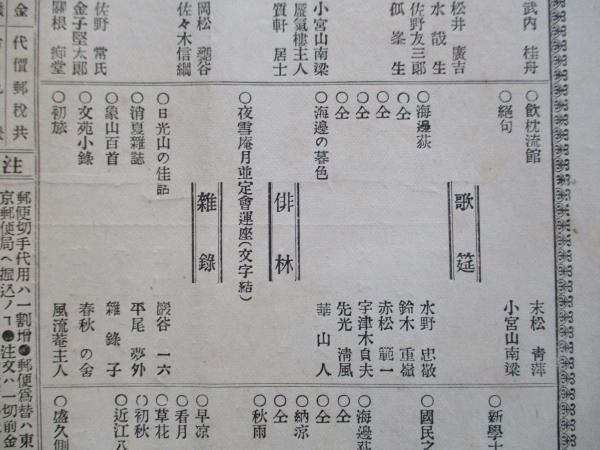 武内 桂舟
松井 廣吉
水哉 生
佐野友三郎
孤峯 生
小宮山南梁
蜃氣樓主人
質軒 居士
岡松 甕谷
佐々木信綱
佐野 常民
金子堅太郎
關根 痴堂
○飲枕流館
末松 青萍
○絕句
小宮山南梁
歌筵
○海邊荻
水野 忠敬
○仝
鈴木 重嶺
○仝
赤松 範一
○仝
宇津木貞夫
○仝
先光 清風
○海邊の暮色
華 山 人
俳林
○夜雪庵月並定會運座(文字結)
雜錄
○日光山の佳話
巖谷 一六
○消夏雜誌
平尾 夢外
○象山百首
雜 錄 子
○文苑小錄
春秋 の舍
○初旅
風流菴主人
○新學士
○國民之
○海邊荻
○仝
○仝
○納凉
○仝
○秋雨
○早凉
○看月
○草花
○初秋
○近江八
○盛久側
金
代價郵稅共
注
郵便切手代用ハ一割增●郵便爲替ハ東
京郵便局ヘ振込ノヿ●注文ハ一切前金